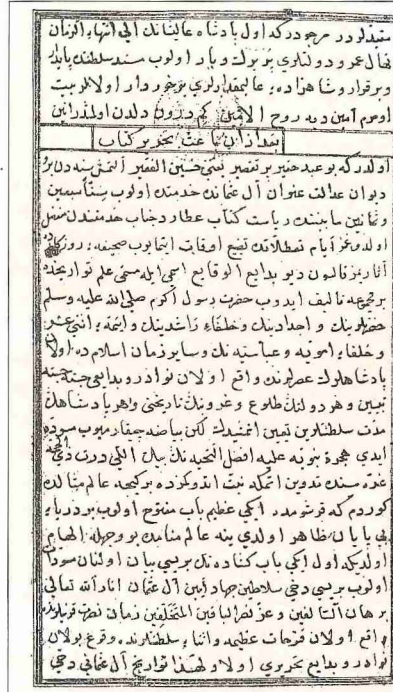 مقيدلردر مرجودركه اول پادشاه عاليشانك الى انتهاء الزمان
نهال عمر و دولتلرى بر و بار اولوب مسند سلطنتده پايدار
و برقرار و شاهزاده عاليمقدارلرى برخوردار اولالر بيت
اوميرم آمين ديه روح الامين كم درون دلدن اولدر انين
بعد از آن باعث تحرير كتاب
اولدركه بو عبد حقير پر تقصير يعنى حسين الفقير التمش سنه دن
ديوان عدالت عنوان آل عثمانده خدمتده اولوب
و ثمانين مابيننده رياست كتاب عطارد خدمتندن منفصل
اولدوغمز ايام تعطيلده تضييع اوقات ايتمايوب صحيفه روزكارده
آثارمز قالسون ديو بدايع الوقايع اسمى ايله مسمى علم تواريخده
بر مجموعه تأليف ايدوب حضرت رسول اكرم صلى الله عليه وسلم
حضرتلرينك و اجدادينك و خلفاء راشدينك و ائمه اثنى عشر
و خلفاء امويه و عباسيه نك و ساير زمان اسلامده اولان
پادشاهلرك عصرلرنده واقع اولان نوادر و بدايعى
تبيين و هر دولتك طلوع و غروبنك تاريخنى و هر پادشاهك
مدت سلطنتلرين تعيين ايتمشيدك لكن بياضه چيقارميوب سوده
ايدى هجرة نبويه عليه افضل التحيه نك بيك اللى درت ذى الحجه
غره سنده تدوين ايتمكه نيت اندوكمزده بر كيجه عالم منامده
كوردم كه قرشومده ايكى عظيم باب مفتوح اولوب بر دريا
بى پايان ظاهر اولدى ينه عالم منامده بو وجهله الهام
اولديكه اول ايكى باب كشاده نك بريسى بيان اولنان سودان
اولوب بريسى دخى سلاطين جهاد آيين آل عثمان انار الله تعالى
برهان السالفين و عز نصر الباقين المتخلفين زمان
واقع اولان فتوحات عظيمه و اثناء سلطنتلرنده وقوع بولان
نوادر و بدايع تحريرى اولا و لهذا تواريخ آل عثمانى دخى